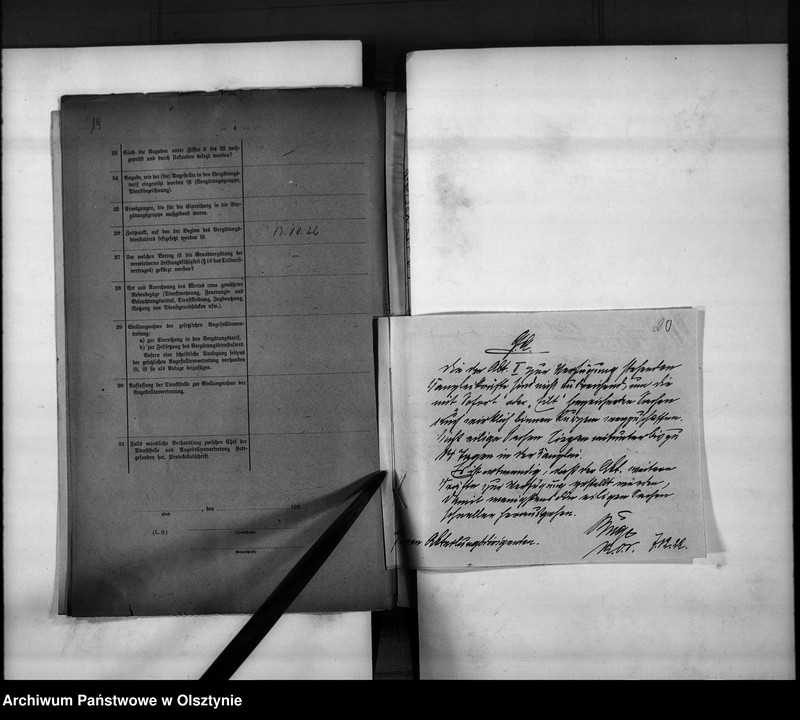 19
— 4 —
23 Sind die Angaben unter Ziffer 2 bis 22 nach-
geprüft und durch Urkunden belegt worden?
24 Angabe, wie der (die) Angestellte in den Vergütungs-
tarif eingereiht worden ist (Vergütungsgruppe,
Dienstbezeichnung).
25 Erwägungen, die für die Einreihung in die Ver-
gütungsgruppe maßgebend waren.
26 Zeitpunkt, auf den der Beginn des Vergütungs-
dienstalters festgesetzt worden ist.
13.10.22
27 Um welchen Betrag ist die Grundvergütung bei
verminderter Leistungsfähigkeit (§ 10 des Teiltarif-
vertrages) gekürzt worden?
28 Art und Anrechnung des Wertes etwa gewährter
Nebenbezüge (Dienstwohnung, Feuerungs- und
Beleuchtungsmittel, Dienstkleidung, Jagdnutzung,
Nutzung von Dienstgrundstücken usw.).
29 Stellungnahme der gesetzlichen Angestelltenver-
tretung:
a) zur Einreihung in den Vergütungstarif,
b) zur Festsetzung des Vergütungsdienstalters.
Sofern eine schriftliche Darlegung seitens
der gesetzlichen Angestelltenvertretung vorhanden
ist, ist sie als Anlage beizufügen.
30 Auffassung der Dienststelle zur Stellungnahme der
Angestelltenvertretung.
31 Falls mündliche Verhandlung zwischen Chef der
Dienststelle und Angestelltenvertretung statt-
gefunden hat, Protokollabschrift.
, den 192
(Ort)
(L. S.)
20
Die der Abt. I zur Verfügung stehenden
Kanzleikräfte sind nicht ausreichend, um die
mit „Sofort“ oder „Eilt“ bezeichneten Sachen
auch wirklich binnen Kurzem wegzuschaffen.
Nicht eilige Sachen liegen mitunter bis zu
14 Tagen in der Kanzlei.
Es ist notwendig, daß der Abt. weitere
Kräfte zur Verfügung gestellt werden,
damit wenigstens die eiligen Sachen
schneller herausgehen.
Herrn Abteilungsdirigenten.